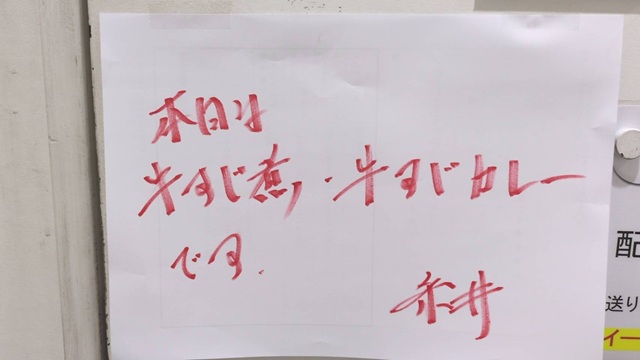 本日は
牛すじ煮・牛すじカレー
です。
赤井
配
送り
イー